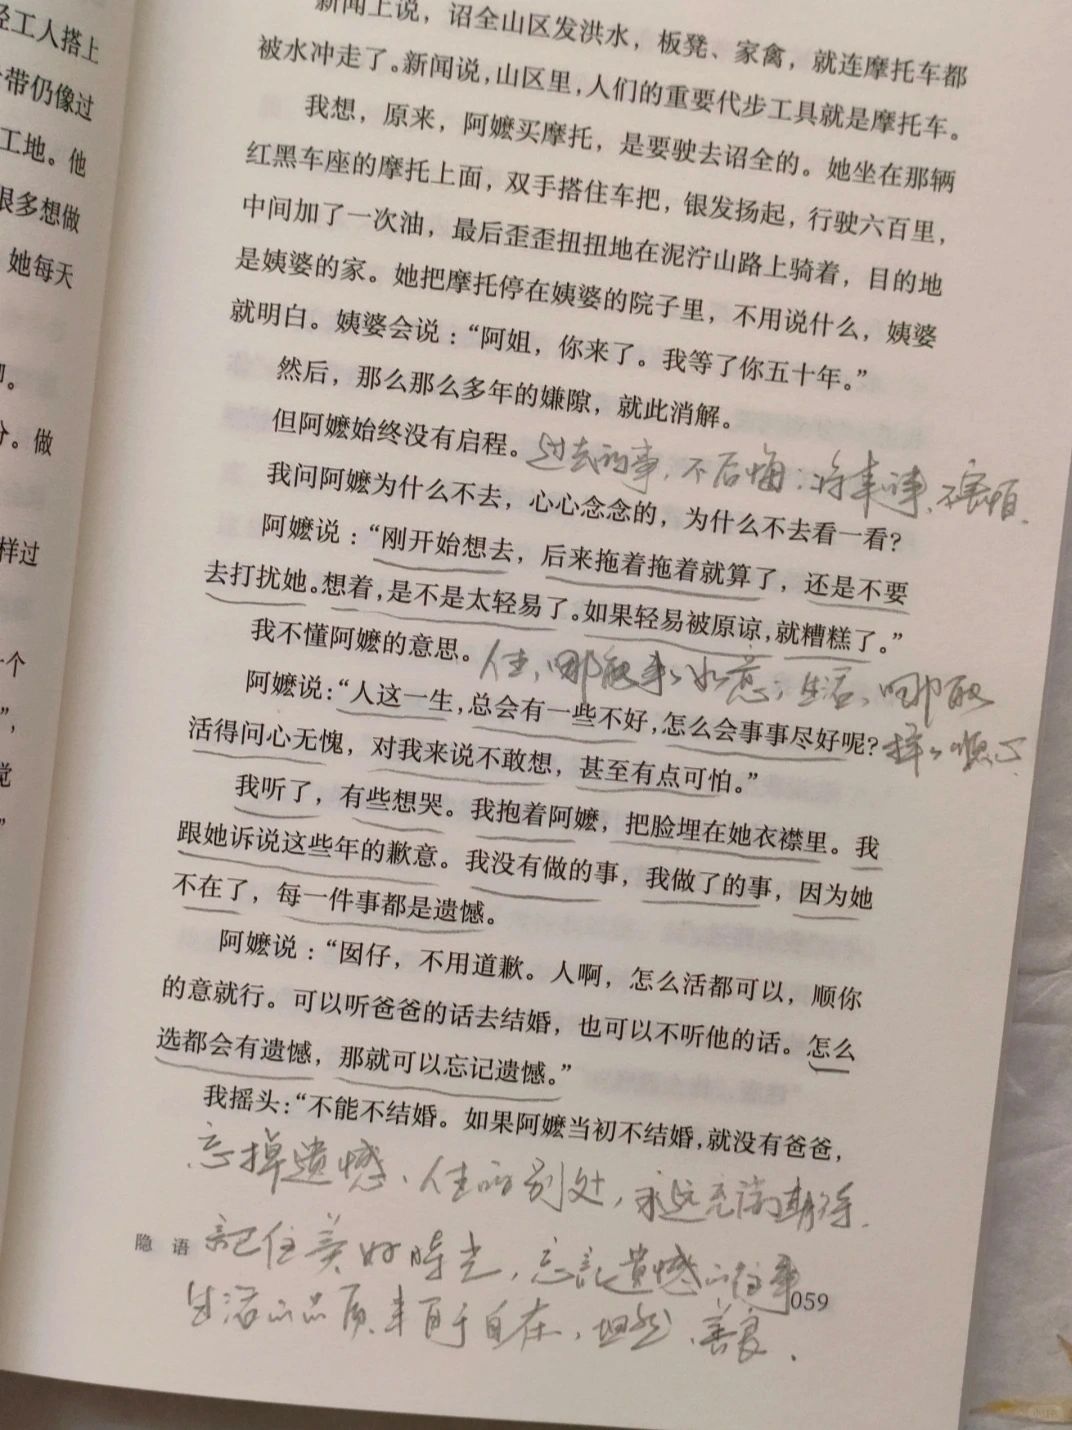 轻工人搭上
带仍像过
工地。他
很多想做
她每天
分。做
样过
一个
觉
新闻上说，诏全山区发洪水，板凳、家禽，就连摩托车都
被水冲走了。新闻说，山区里，人们的重要代步工具就是摩托车。
我想，原来，阿嬷买摩托，是要驶去诏全的。她坐在那辆
红黑车座的摩托上面，双手搭住车把，银发扬起，行驶六百里，
中间加了一次油，最后歪歪扭扭地在泥泞山路上骑着，目的地
是姨婆的家。她把摩托停在姨婆的院子里，不用说什么，姨婆
就明白。姨婆会说：“阿姐，你来了。我等了你五十年。”
然后，那么那么多年的嫌隙，就此消解。
但阿嬷始终没有启程。
过去的事，不后悔；将来的事，不烦恼。
我问阿嬷为什么不去，心心念念的，为什么不去看一看？
阿嬷说：“刚开始想去，后来拖着拖着就算了，还是不要
去打扰她。想着，是不是太轻易了。如果轻易被原谅，就糟糕了。”
我不懂阿嬷的意思。
人生，哪能事事如意；生活，哪能
样样顺心
阿嬷说：“人这一生，总会有一些不好，怎么会事事尽好呢？
活得问心无愧，对我来说不敢想，甚至有点可怕。”
我听了，有些想哭。我抱着阿嬷，把脸埋在她衣襟里。我
跟她诉说这些年的歉意。我没有做的事，我做了的事，因为她
不在了，每一件事都是遗憾。
阿嬷说：“囡仔，不用道歉。人啊，怎么活都可以，顺你
的意就行。可以听爸爸的话去结婚，也可以不听他的话。怎么
选都会有遗憾，那就可以忘记遗憾。”
我摇头：“不能不结婚。如果阿嬷当初不结婚，就没有爸爸，
忘掉遗憾、人生的别处，永远充满期待.
隐 语
记住美好时光，忘记遗憾的往事
059
生活的品质来自于自在，坦然、善良.